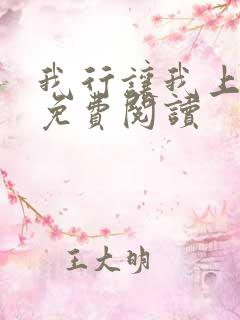 我行讓我上
免費閱讀
王大明